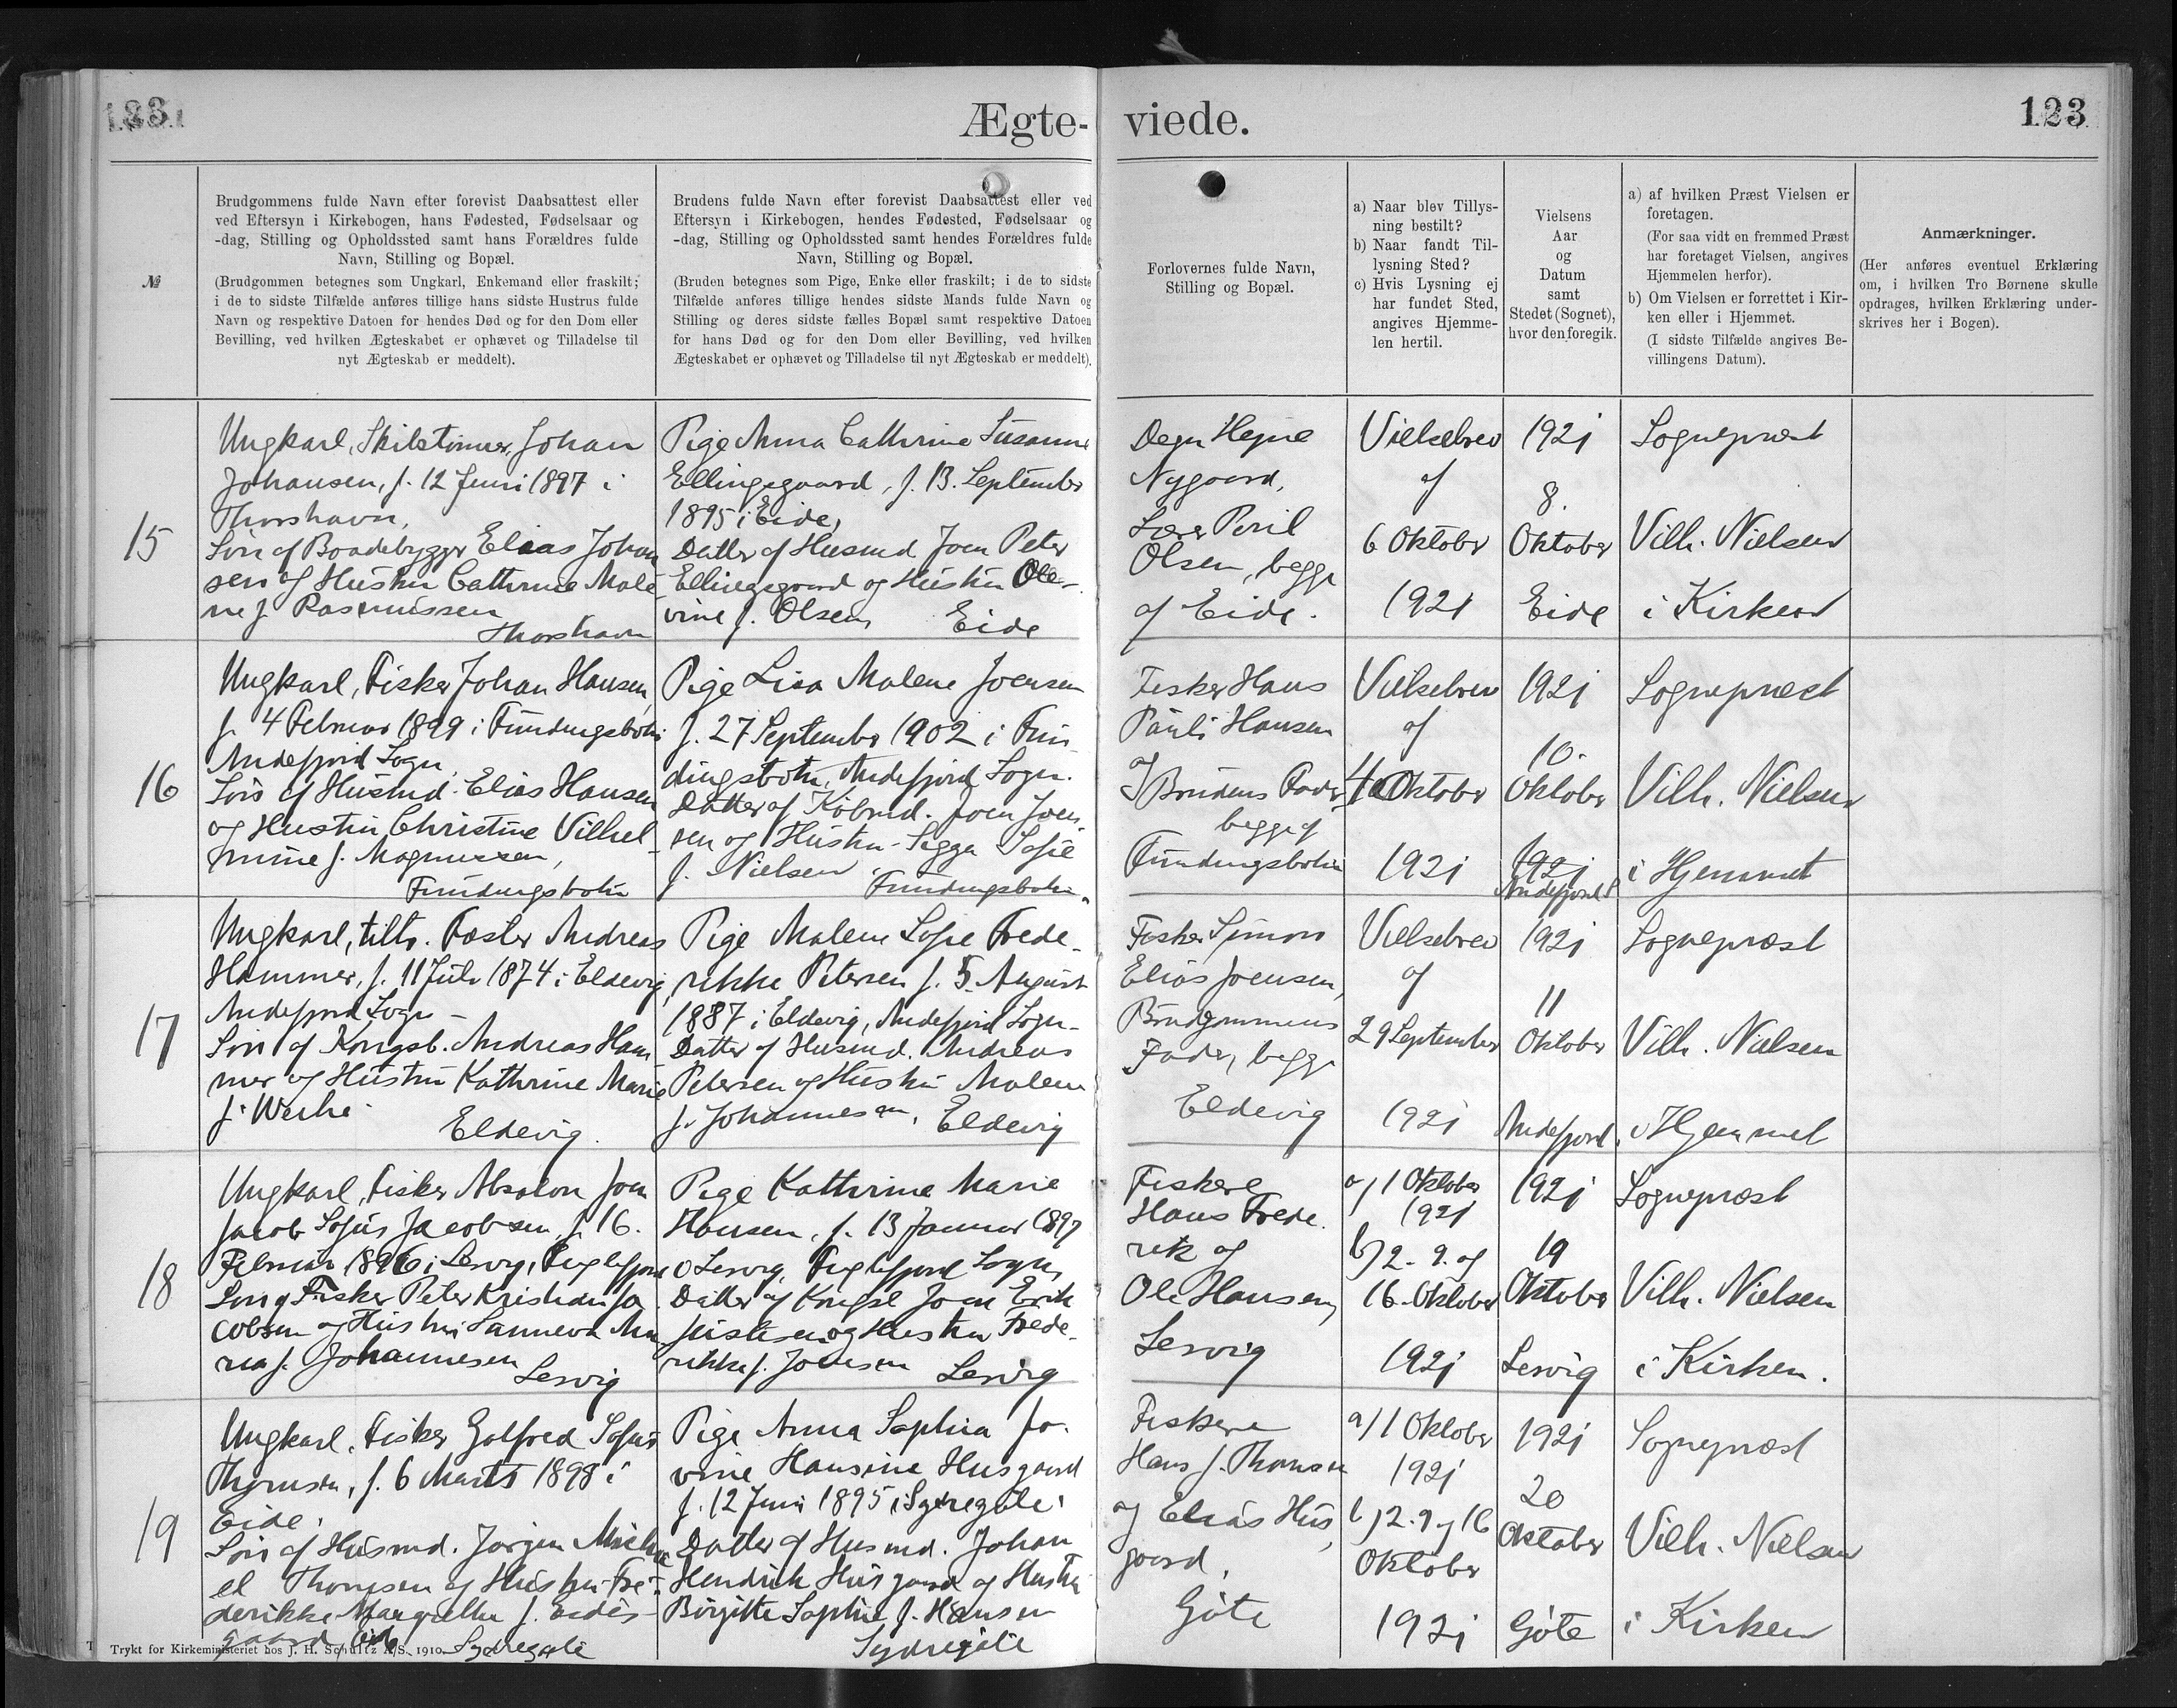 123
Ægte-
viede.
123
№
Brudgommens fulde Navn efter forevist Daabsattest eller
ved Eftersyn i Kirkebogen, hans Fødested, Fødselsaar og
-dag, Stilling og Opholdssted samt hans Forældres fulde
Navn, Stilling og Bopæl.
(Brudgommen betegnes som Ungkarl, Enkemand eller fraskilt;
i de to sidste Tilfælde anføres tillige hans sidste Hustrus fulde
Navn og respektive Datoen for hendes Død og for den Dom eller
Bevilling, ved hvilken Ægteskabet er ophævet og Tilladelse til
nyt Ægteskab er meddelt).
Brudens fulde Navn efter forevist Daabsattest eller ved
Eftersyn i Kirkebogen, hendes Fødested, Fødselsaar og
-dag, Stilling og Opholdssted samt hendes Forældres fulde
Navn, Stilling og Bopæl.
(Bruden betegnes som Pige, Enke eller fraskilt; i de to sidste
Tilfælde anføres tillige hendes sidste Mands fulde Navn og
Stilling og deres sidste fælles Bopæl samt respektive Datoen
for hans Død og for den Dom eller Bevilling, ved hvilken
Ægteskabet er ophævet og Tilladelse til nyt Ægteskab er meddelt).
Forlovernes fulde Navn,
Stilling og Bopæl.
a) Naar blev Tillys-
ning bestilt?
b) Naar fandt Til-
lysning Sted?
c) Hvis Lysning ej
har fundet Sted,
angives Hjemme-
len hertil.
Vielsens
Aar
og
Datum
samt
Stedet (Sognet),
hvor den foregik.
a) af hvilken Præst Vielsen er
foretagen.
(For saa vidt en fremmed Præst
har foretaget Vielsen, angives
Hjemmelen herfor).
b) Om Vielsen er forrettet i Kir-
ken eller i Hjemmet.
(I sidste Tilfælde angives Be-
villingens Datum).
Anmærkninger.
(Her anføres eventuel Erklæring
om, i hvilken Tro Børnene skulle
opdrages, hvilken Erklæring under-
skrives her i Bogen).
15
Ungkarl, Johan
Johansen, f. 12 Juni 1897 i
Thorshavn,
Søn af Baadebygger Elias Johan
sen og Hustru Cathrine Male
ne f. Rasmussen
Thorshavn
Pige Anna Cathrine Susanne
Ellingsgaard, f. 13. September
1895 i Eide,
Datter af Husmd Joen Peter
Ellingsgaard og Hustru Ole-
vine f. Olsen, Eide
Degn Hejne
Nygaard,
Lærer Poul
Olsen, begge
af Eide.
Vielsebrev
af
6 Oktober
1921
1921
8.
Oktober
Eide
Sognepræst
Vilh. Nielsen
i Kirken
16
Ungkarl, Fisker Johan Hansen,
f. 4 Februar 1899 i Fundingsbotn
Andefjord Sogn,
Søn af Husmd. Elias Hansen
og Hustru Christine Vilhel-
mine f. Magnussen,
Fundingsbotn
Pige Lisa Malene Joensen
f. 27 September 1902 i Fun-
dingsbotn, Andefjord Sogn.
Datter af Købmd. Joen Joen
sen og Hustru Sigga Sofie
f. Nielsen Fundingsbotn
Fisker Hans
Pauli Hansen
og
Brudens Fader
begge af
Fundingsbotn
Vielsebrev
af
4 Oktober
1921
1921
10.
Oktober
1921
Andefjord
Sognepræst
Vilh. Nielsen
i Hjemmet
17
Ungkarl, tilk. Fæster Andreas
Hammer, f. 11 Juli 1874 i Eldevig,
Andefjord Sogn -
Søn af Kongsb. Andreas Ham
mer og Hustru Kathrine Marie
f. Weihe
Eldevig.
Pige Malene Sofie Frede-
rikke Petersen f. 5. August
1887 i Eldevig, Andefjord Sogn-
Datter af Husmd. Andreas
Petersen og Hustru Malene
f. Johannesen, Eldevig
Fisker Simon
Elias Joensen,
Brudgommens
Fader, begge
Eldevig
Vielsebrev
af
29 September
1921
1921
11
Oktober
Andefjord
Sognepræst
Vilh. Nielsen
i Hjemmet
18
Ungkarl, Fisker Absalon Joen
Jacob Sofus Jacobsen, f. 16.
Februar 1896 i Lervig, Fuglefjord
Søn af Fisker Peter Kristian Ja
cobsen og Hustru Sanneva Ma
ria f. Johannesen
Lervig
Pige Kathrine Marie
Hansen, f. 13 Januar 1897
i Lervig, Fuglefjord Sogn,
Datter af Joen Erik
og Hustru Frede-
rikke f. Joensen Lervig
Fiskere
Hans Frede
rik og
Ole Hansen,
Lervig
a) 1 Oktober
1921
b) 2. 9. og
16. Oktober
1921
1921
19
Oktober
Lervig
Sognepræst
Vilh. Nielsen
i Kirken.
19
Ungkarl, Fisker Golfred Sofus
Thomsen, f. 6 Marts 1898 i
Eide,
Søn af Husmd. Jørgen Mich
el Thomsen og Hustru Fre-
derikke Margrethe f. Eides-
gaard, Sydregøte
Pige Anna Sophia Jo-
vine Hansine Husgaard
f. 12 Juni 1895 i Sydregøte
Datter af Husmd. Johan
Hendrik Husgaard og Hustru
Birgitte Sophie f. Hansen
Sydregøte
Fiskere
Hans J. Thomsen
og Elias Hus
gaard,
Gøte
a) 1 Oktober
1921
b) 2. 9 og 16
Oktober
1921
1921
20
Oktober
Gøte
Sognepræst
Vilh. Nielsen
i Kirken
Trykt for Kirkeministeriet hos J. H. Schultz A/S. 1910.